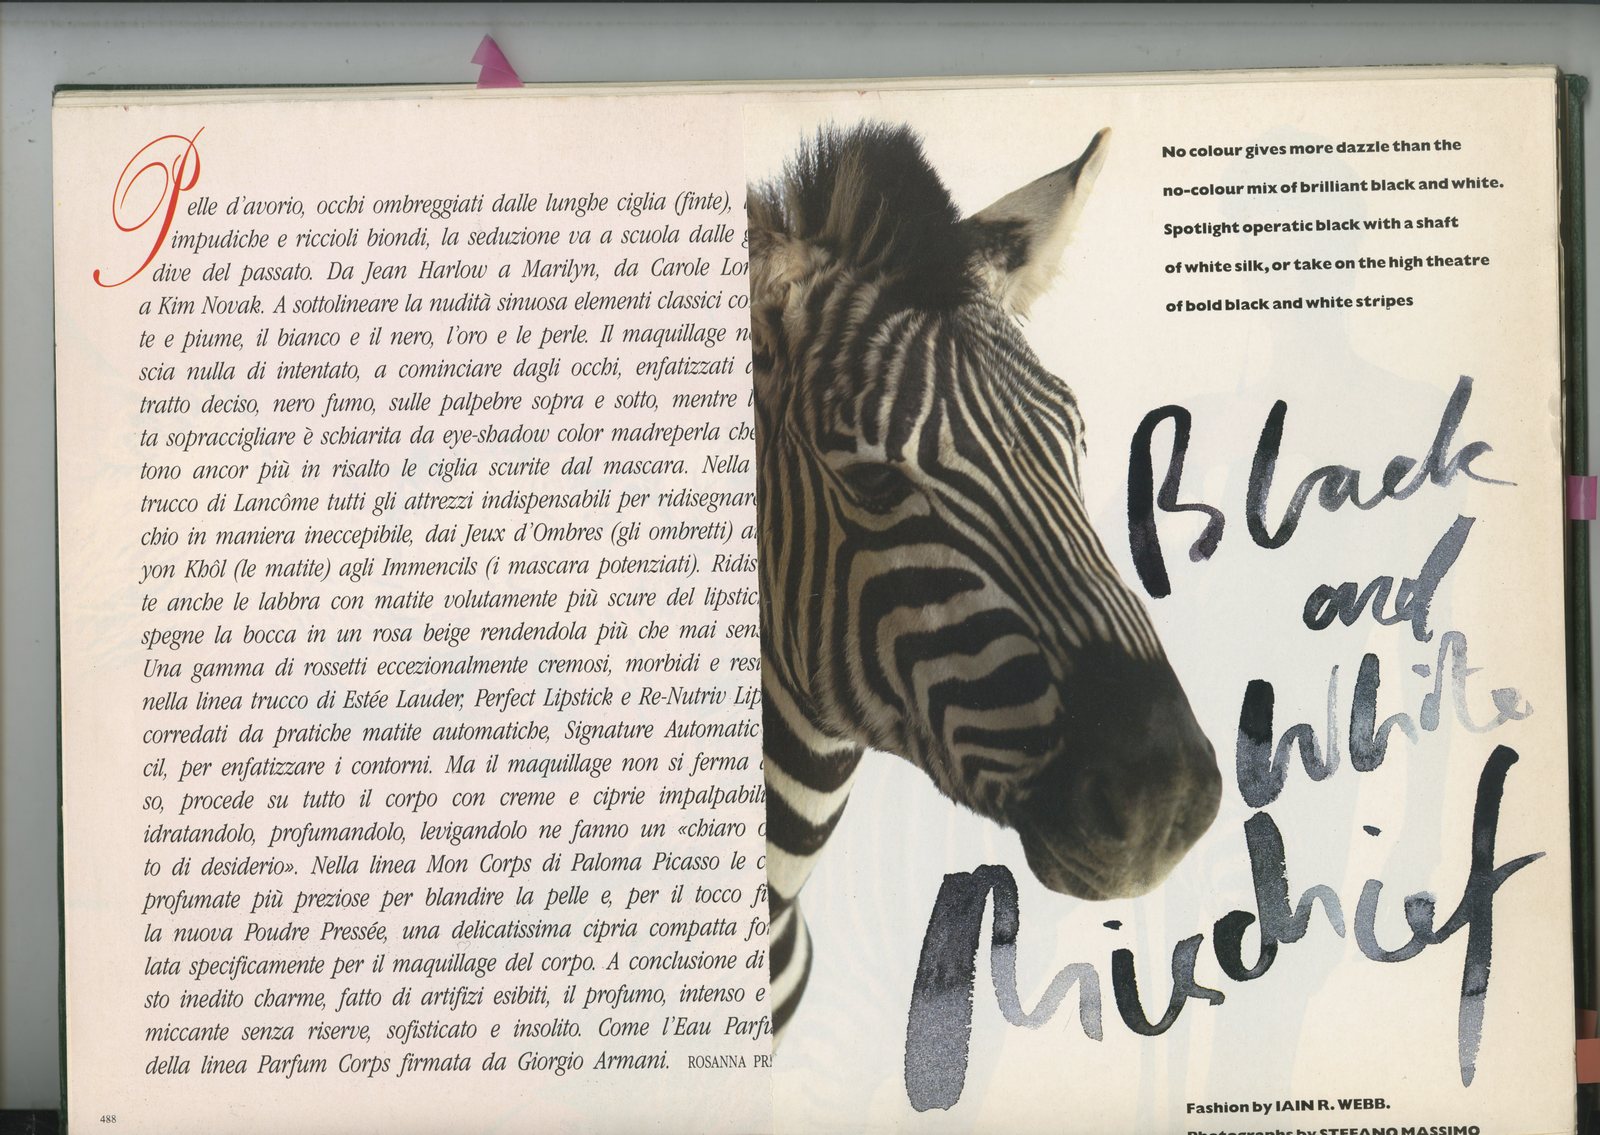 Pelle d'avorio, occhi ombreggiati dalle lunghe ciglia (finte),
impudiche e riccioli biondi, la seduzione va a scuola dalle
dive del passato. Da Jean Harlow a Marilyn, da Carole
a Kim Novak. A sottolineare la nudità sinuosa elementi classici
te e piume, il bianco e il nero, l'oro e le perle. Il maquillage
scia nulla di intentato, a cominciare dagli occhi, enfatizzati
tratto deciso, nero fumo, sulle palpebre sopra e sotto, mentre
ta sopraccigliare è schiarita da eye-shadow color madreperla
tono ancor più in risalto le ciglia scurite dal mascara. Nella
trucco di Lancôme tutti gli attrezzi indispensabili per
chio in maniera ineccepibile, dai Jeux d'Ombres (gli ombretti)
yon Khôl (le matite) agli Immencils (i mascara potenziati).
te anche le labbra con matite volutamente più scure del
spegne la bocca in un rosa beige rendendola più che mai
Una gamma di rossetti eccezionalmente cremosi, morbidi e
nella linea trucco di Estée Lauder, Perfect Lipstick e Re-Nutriv
corredati da pratiche matite automatiche, Signature Automatic
cil, per enfatizzare i contorni. Ma il maquillage non si ferma
so, procede su tutto il corpo con creme e ciprie
idratandolo, profumandolo, levigandolo ne fanno un «chiaro
to di desiderio». Nella linea Mon Corps di Paloma Picasso le
profumate più preziose per blandire la pelle e, per il tocco
la nuova Poudre Pressée, una delicatissima cipria compatta
lata specificamente per il maquillage del corpo. A conclusione di
sto inedito charme, fatto di artifizi esibiti, il profumo, intenso e
miccante senza riserve, sofisticato e insolito. Come l'Eau
della linea Parfum Corps firmata da Giorgio Armani. ROSANNA
488
No colour gives more dazzle than the
no-colour mix of brilliant black and white.
Spotlight operatic black with a shaft
of white silk, or take on the high theatre
of bold black and white stripes
Black
and
White
Mischief
Fashion by IAIN R. WEBB.
Photographs by STEFANO MASSIMO